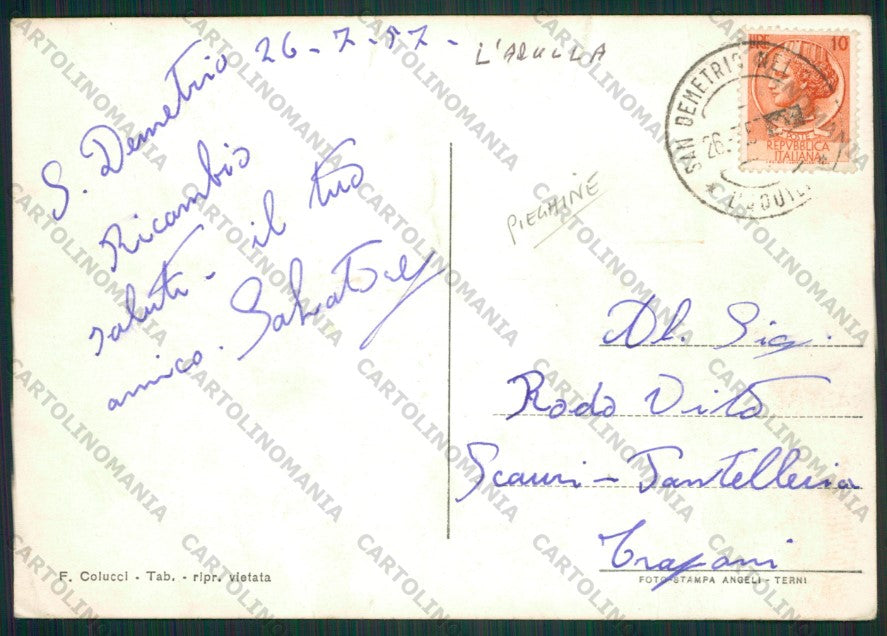 S. Demetrio 26-7-57-
Ricambio
saluti - il tuo
amico. Salvatore
L'AQUILA
PIEGHINE
LIRE 10
POSTE
REPVBBLICA
ITALIANA
SAN DEMETRIO NEI
26.
L'AQUILA
Al. Sig.
Rodo Vito
Scauri - Pantelleria
Trapani
F. Colucci - Tab. - ripr. vietata
FOTO-STAMPA ANGELI - TERNI
CARTOLINOMANIA